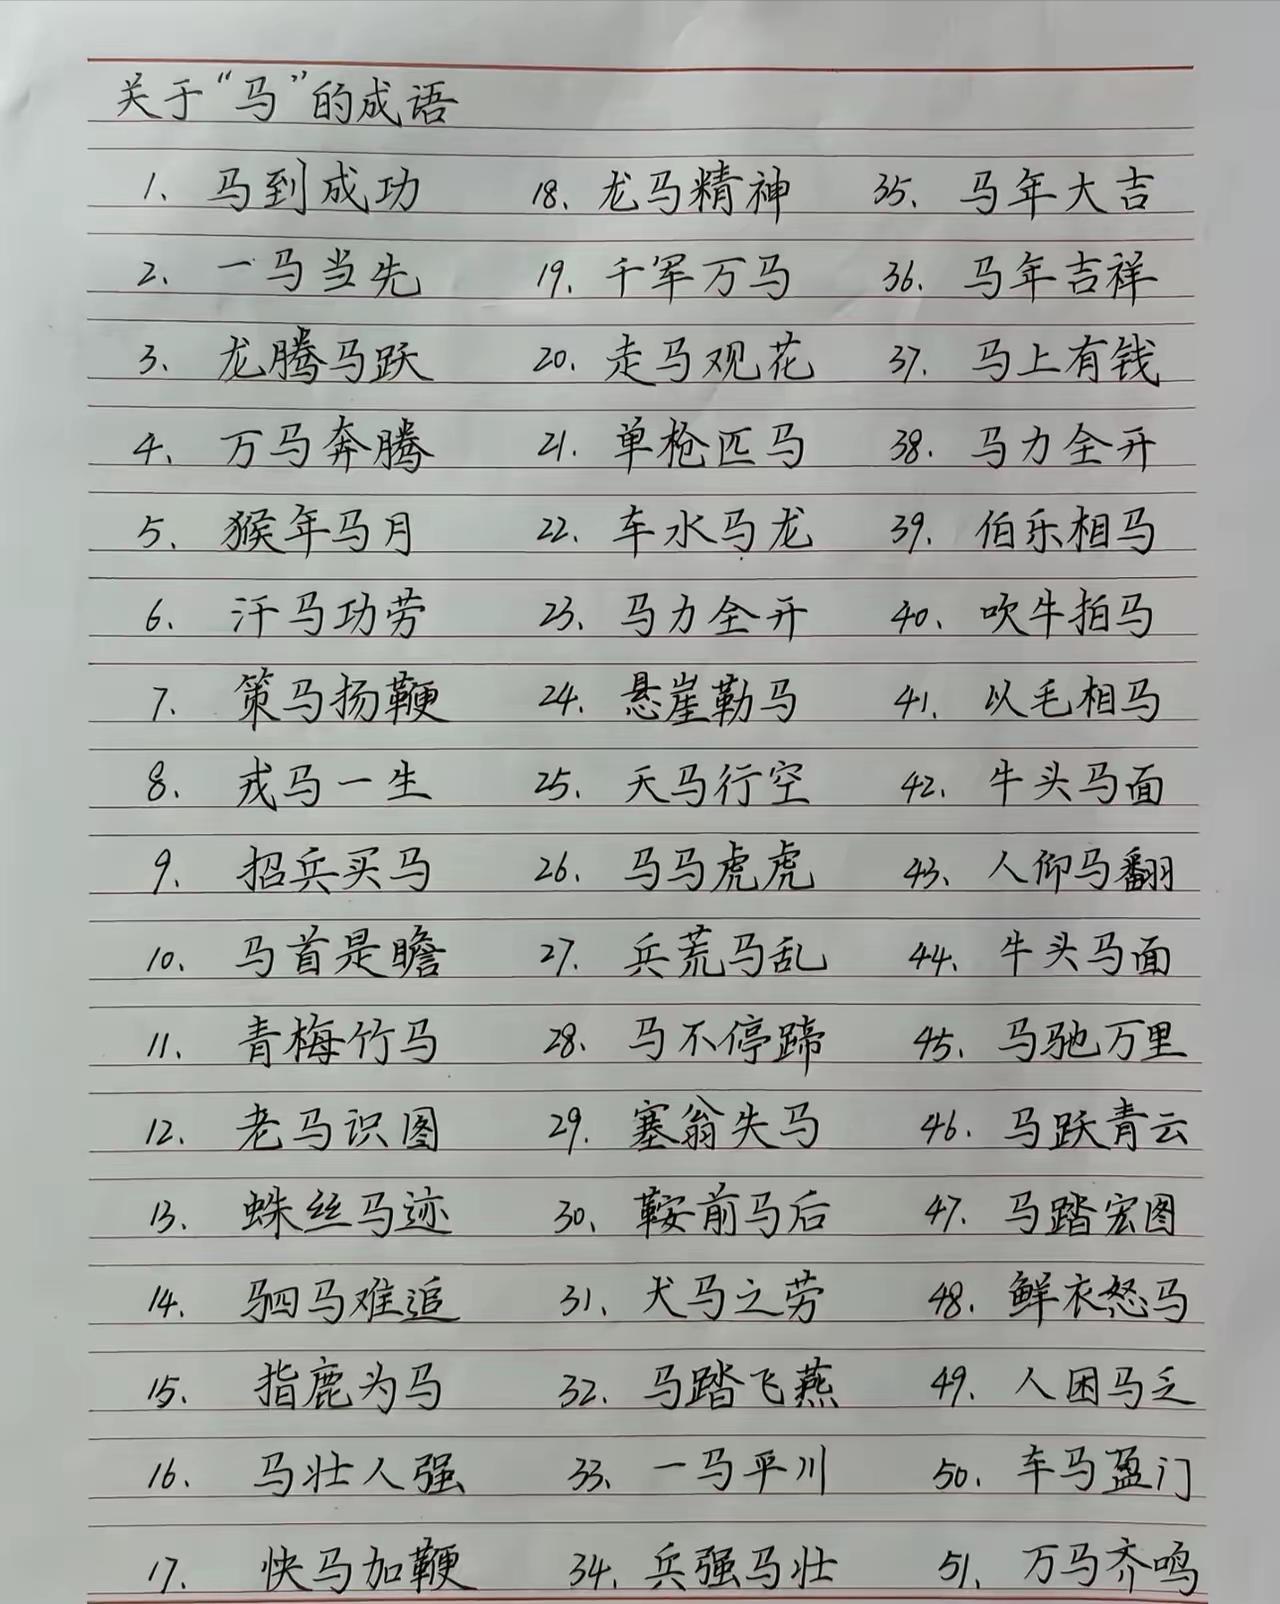 关于“马”的成语
1. 马到成功 18. 龙马精神 35. 马年大吉
2. 一马当先 19. 千军万马 36. 马年吉祥
3. 龙腾马跃 20. 走马观花 37. 马上有钱
4. 万马奔腾 21. 单枪匹马 38. 马力全开
5. 猴年马月 22. 车水马龙 39. 伯乐相马
6. 汗马功劳 23. 马力全开 40. 吹牛拍马
7. 策马扬鞭 24. 悬崖勒马 41. 以毛相马
8. 戎马一生 25. 天马行空 42. 牛头马面
9. 招兵买马 26. 马马虎虎 43. 人仰马翻
10. 马首是瞻 27. 兵荒马乱 44. 牛头马面
11. 青梅竹马 28. 马不停蹄 45. 马驰万里
12. 老马识图 29. 塞翁失马 46. 马跃青云
13. 蛛丝马迹 30. 鞍前马后 47. 马踏宏图
14. 驷马难追 31. 犬马之劳 48. 鲜衣怒马
15. 指鹿为马 32. 马踏飞燕 49. 人困马乏
16. 马壮人强 33. 一马平川 50. 车马盈门
17. 快马加鞭 34. 兵强马壮 51. 万马齐鸣